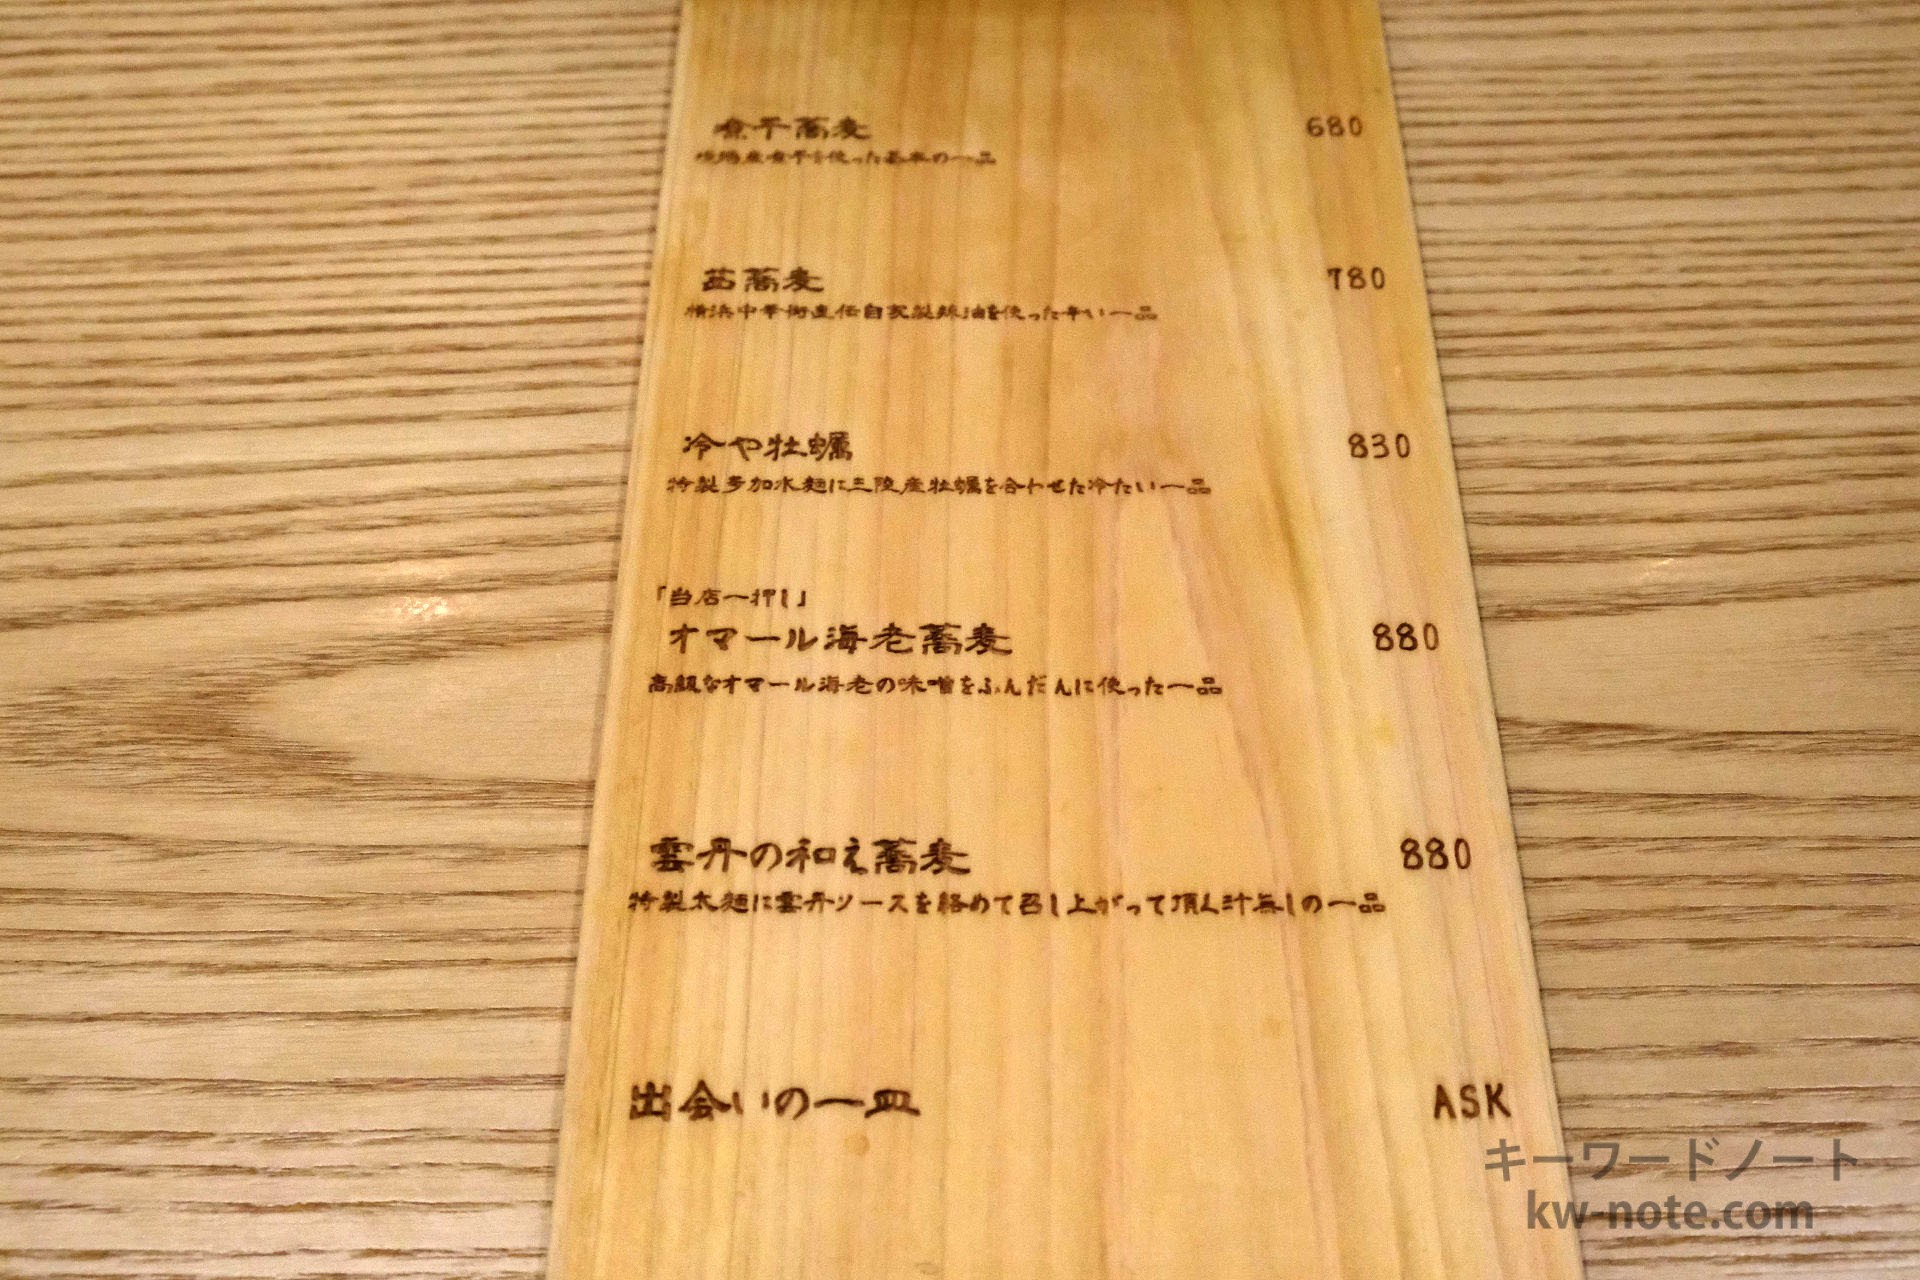 煮干蕎麦 680
境港産煮干を使った基本の一品
茜蕎麦 780
横浜中華街直伝自家製辣油を使った辛い一品
冷や牡蠣 830
特製多加水麺に三陸産牡蠣を合わせた冷たい一品
「当店一押し」
オマール海老蕎麦 880
高級なオマール海老の味噌をふんだんに使った一品
雲丹の和え蕎麦 880
特製太麺に雲丹ソースを絡めて召し上がって頂く汁無しの一品
出会いの一皿 ASK
キーワードノート
kw-note.com